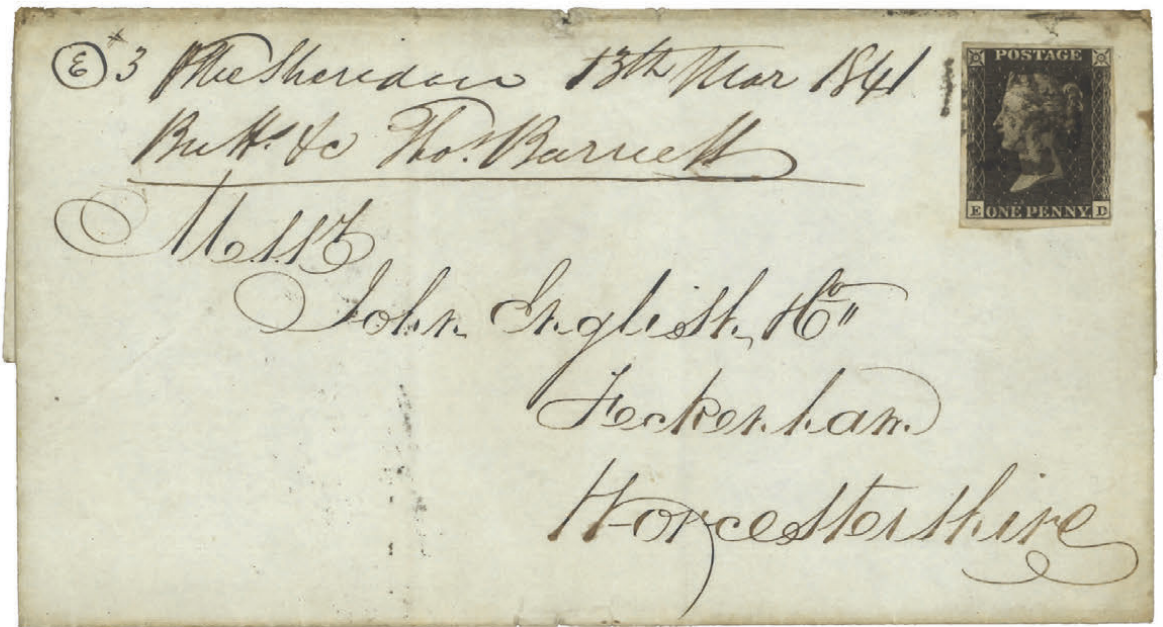 E * 3 The Sheridan 13th Mar 1841
&c Thos. Barrett
Messrs
John English, & Co
Feckenham
Worcestershire
POSTAGE
E ONE PENNY. D